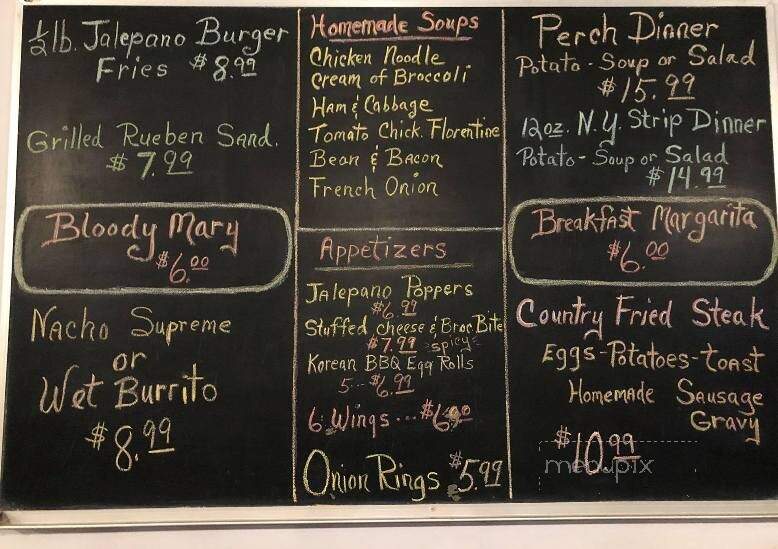 ½ lb. Jalepano Burger
Fries $8.99
Grilled Rueben Sand.
$7.99
Bloody Mary
$6.00
Nacho Supreme
or
Wet Burrito
$8.99
Homemade Soups
Chicken Noodle
Cream of Broccoli
Ham & Cabbage
Tomato Chick. Florentine
Bean & Bacon
French Onion
Appetizers
Jalepano Poppers
$6.99
Stuffed cheese & Broc Bite
$7.99 spicy
Korean BBQ Egg Rolls
5... $6.99
6 Wings ...
Onion Rings $5.99
Perch Dinner
Potato - Soup or Salad
$15.99
12oz. N.Y. Strip Dinner
Potato - Soup or Salad
$14.99
Breakfast Margarita
$6.00
Country Fried Steak
Eggs-Potatoes-toast
Homemade Sausage
Gravy
$10.99
menupix